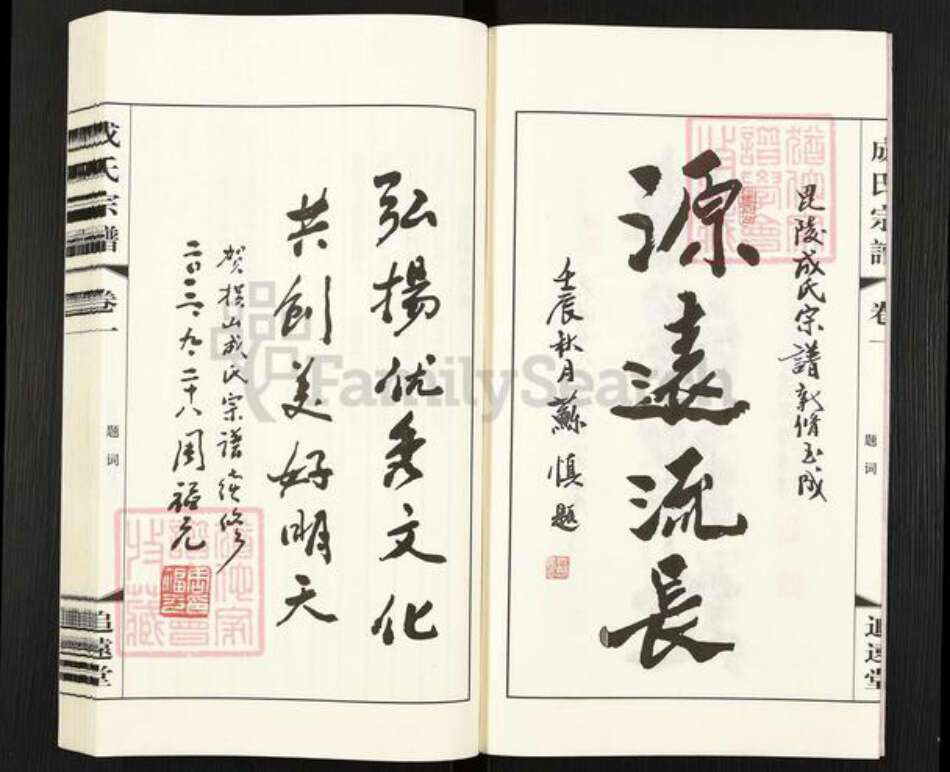 成氏宗譜 卷一 题词 追遠堂
毘陵成氏宗譜新修玉成
源遠流長
壬辰秋月 蘇慎題
弘揚优秀文化
共创美好明天
贺横山成氏宗谱续修
二〇一三、九、二十八 周福元
成氏宗譜 卷一 题词 追遠堂
FamilySearch